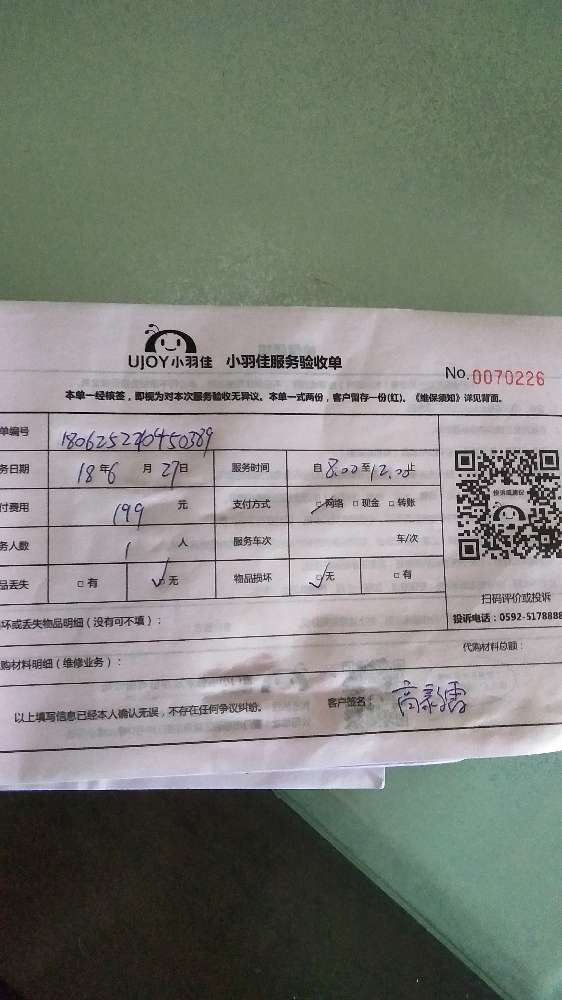 UJOY小羽佳 小羽佳服务验收单
No.0070226
本单一经核签，即视为对本次服务验收无异议。本单一式两份，客户留存一份(红)。《维保须知》详见背面。
单编号 180625220450389
务日期 18年6月27日 服务时间 自8:00至12:00止
付费用 199元 支付方式 网络 现金 转账
务人数 1人 服务车次 车/次
品丢失 有 无 物品损坏 无 有
扫码评价或投诉
投诉电话：0592-5178888
坏或丢失物品明细（没有可不填）：
购材料明细（维修业务）： 代购材料总额：
以上填写信息已经本人确认无误，不存在任何争议纠纷。 客户签名：